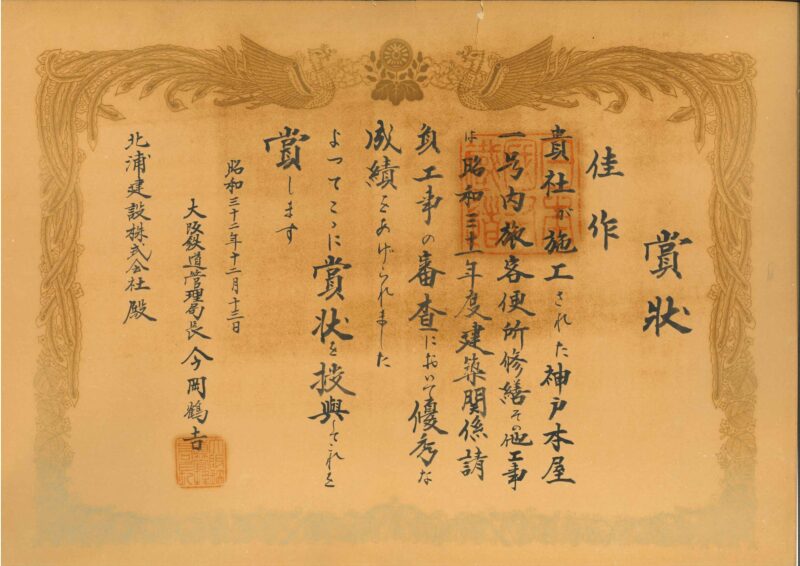 賞状
佳作
貴社が施工された神戸本屋
一号内旅客便所修繕その他工事
は昭和三十一年度建築関係請
負工事の審査において優秀な
成績をあげられました
よってこゝに賞状を授與してこれを
賞します
昭和三十二年十二月十三日
大阪鉄道管理局長 今岡鶴吉
北浦建設株式会社殿